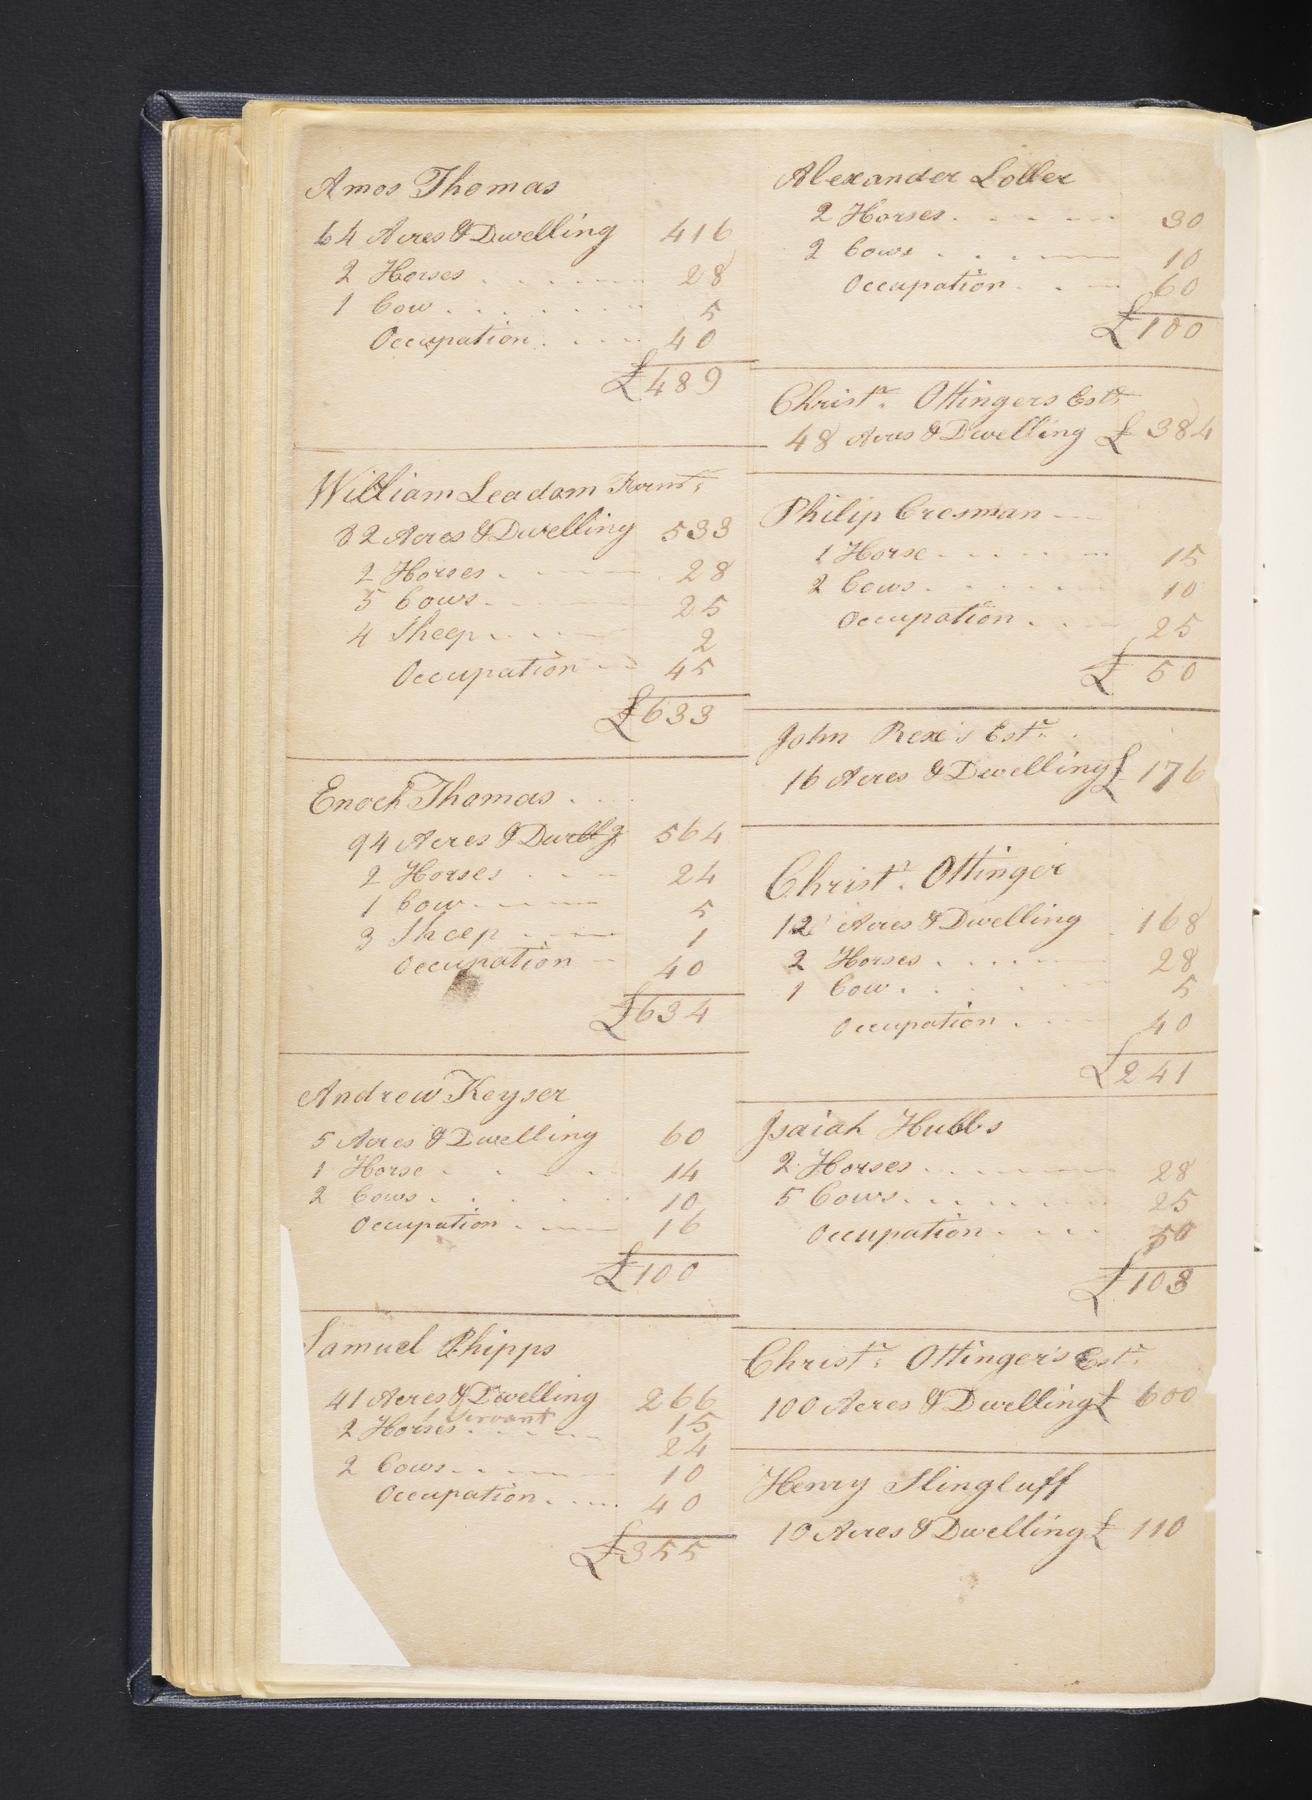 Amos Thomas
64 Acres & Dwelling 416
2 Horses 28
1 Cow 5
Occupation 40
£489
William Leadom Farmr.
82 Acres & Dwelling 533
2 Horses 28
5 Cows 25
4 Sheep 2
Occupation 45
£633
Enoch Thomas
94 Acres & Dwellg 564
2 Horses 24
1 Cow 5
3 Sheep 1
Occupation 40
£634
Andrew Keyser
5 Acres & Dwelling 60
1 Horse 14
2 Cows 10
Occupation 16
£100
Samuel Phipps
41 Acres & Dwelling 266
1 Servant 15
2 Horses 24
2 Cows 10
Occupation 40
£355
Alexander Loller
2 Horses 30
2 Cows 10
Occupation 60
£100
Christr. Ottingers Estt
48 Acres & Dwelling £384
Philip Cresman
1 Horse 15
2 Cows 10
Occupation 25
£50
John Rex's Estr.
16 Acres & Dwelling £176
Christr. Ottinger
12 Acres & Dwelling 168
2 Horses 28
1 Cow 5
Occupation 40
£241
Isaiah Hubbs
2 Horses 28
5 Cows 25
Occupation 50
£103
Christr. Ottinger's Estr.
100 Acres & Dwelling £600
Henry Slingluff
10 Acres & Dwelling £110